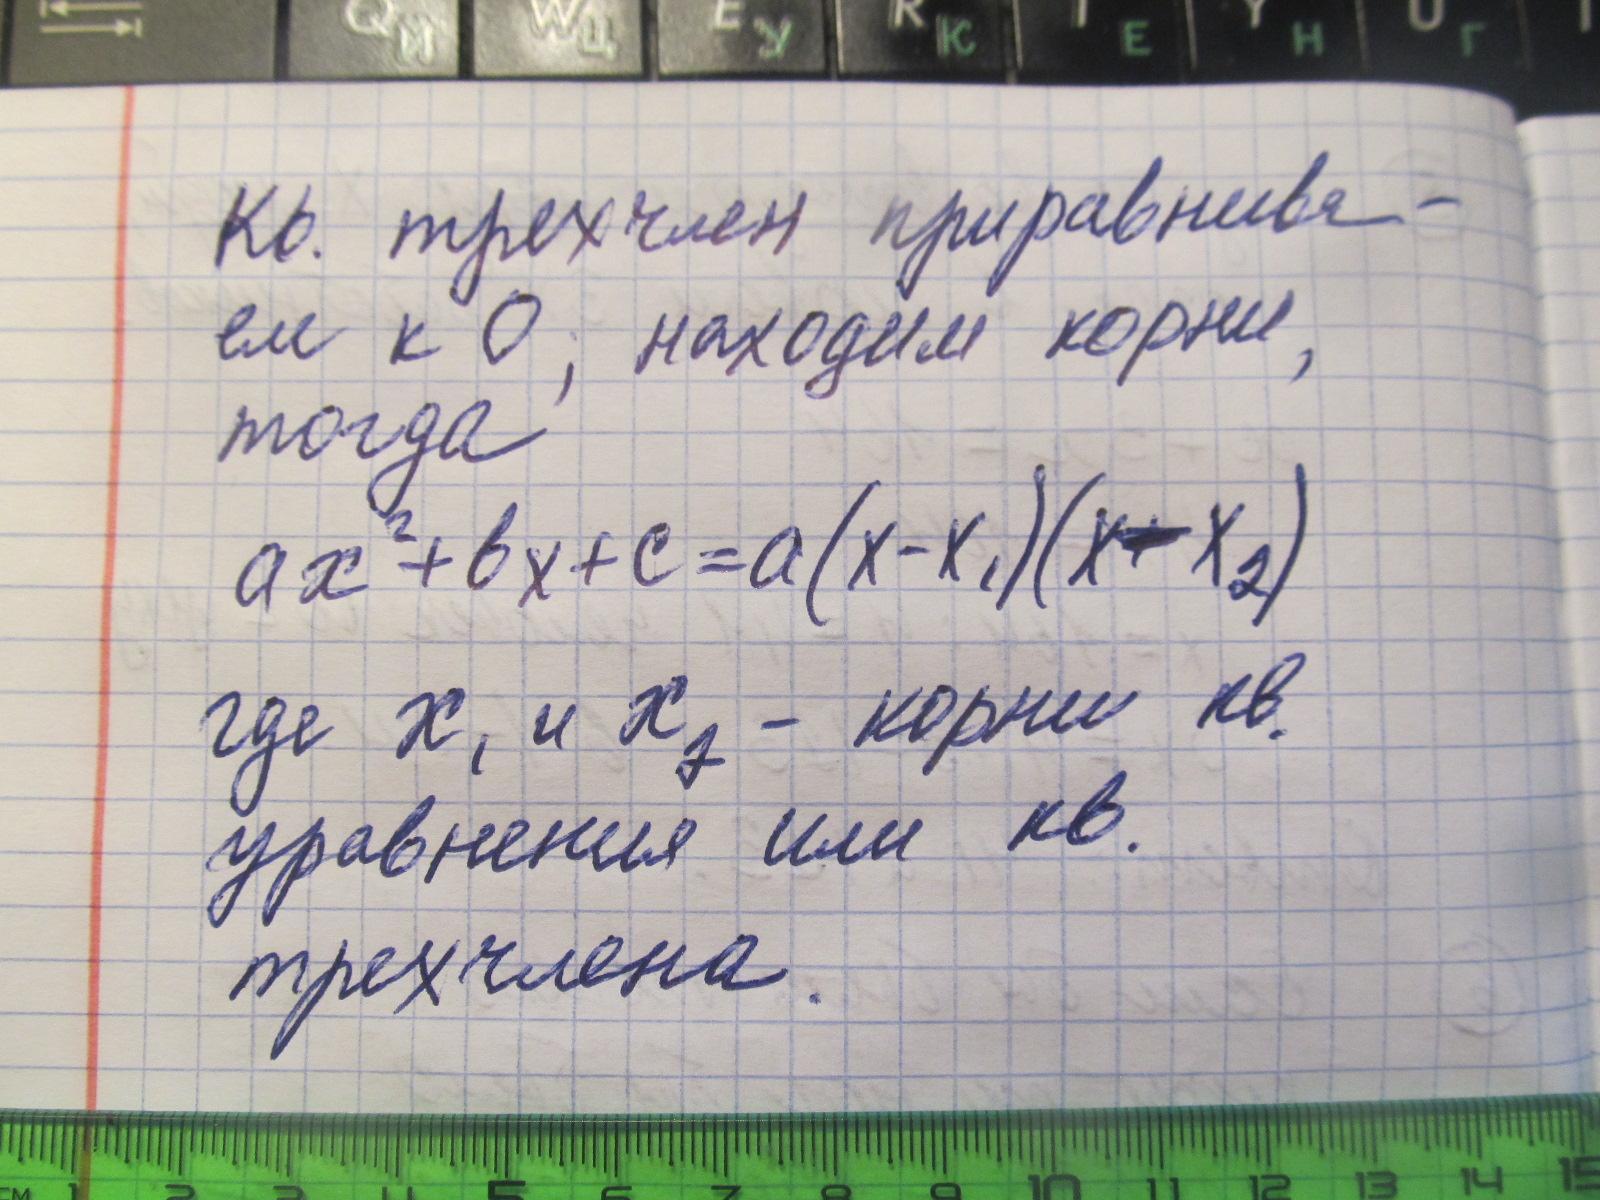 Q Й W Ц E У R К T Е Y Н U Г
Кв. трехчлен приравнива-
ем к 0, находим корни,
тогда
ax²+bx+c=a(x-x₁)(x-x₂)
где x₁ и x₂ - корни кв.
уравнения или кв.
трехчлена.
СМ 1 2 3 4 5 6 7 8 9 10 11 12 13 14 15